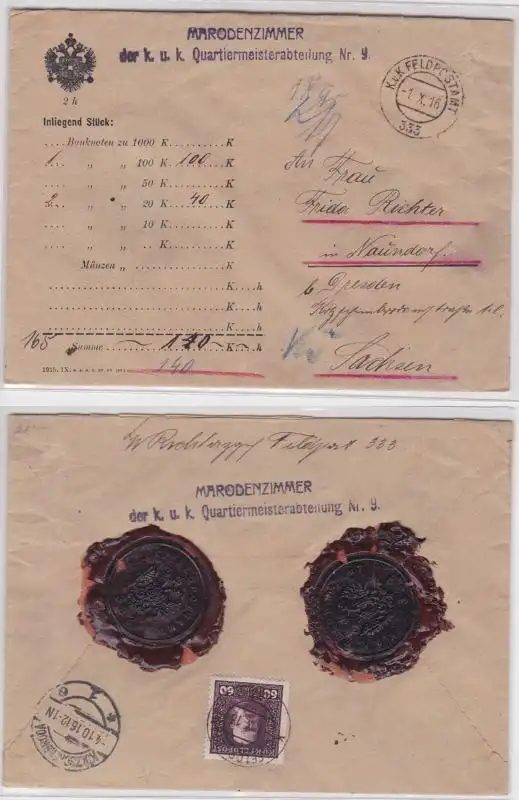 MARODENZIMMER
der k. u. k. Quartiermeisterabteilung Nr. 9.
2 h
K.u.K. FELDPOSTAMT
-1. X. 16
333
Inliegend Stück:
.... Banknoten zu 1000 K..........K
1 „ „ 100 K 100 K
.... „ „ 50 K..........K
2 „ „ 20 K 40 K
.... „ „ 10 K..........K
.... „ „ .. K..........K
Münzen „ ..........K
K....h
K....h
K....h
165 Summe 140 K....h
140
1915. IX.
An Frau
Frida Richter
in Naundorf
b Dresden
Sachsen
Feldpost 333
MARODENZIMMER
der k. u. k. Quartiermeisterabteilung Nr. 9.
60 60
K.u.K. FELDPOST
-4.10.16.12-1N